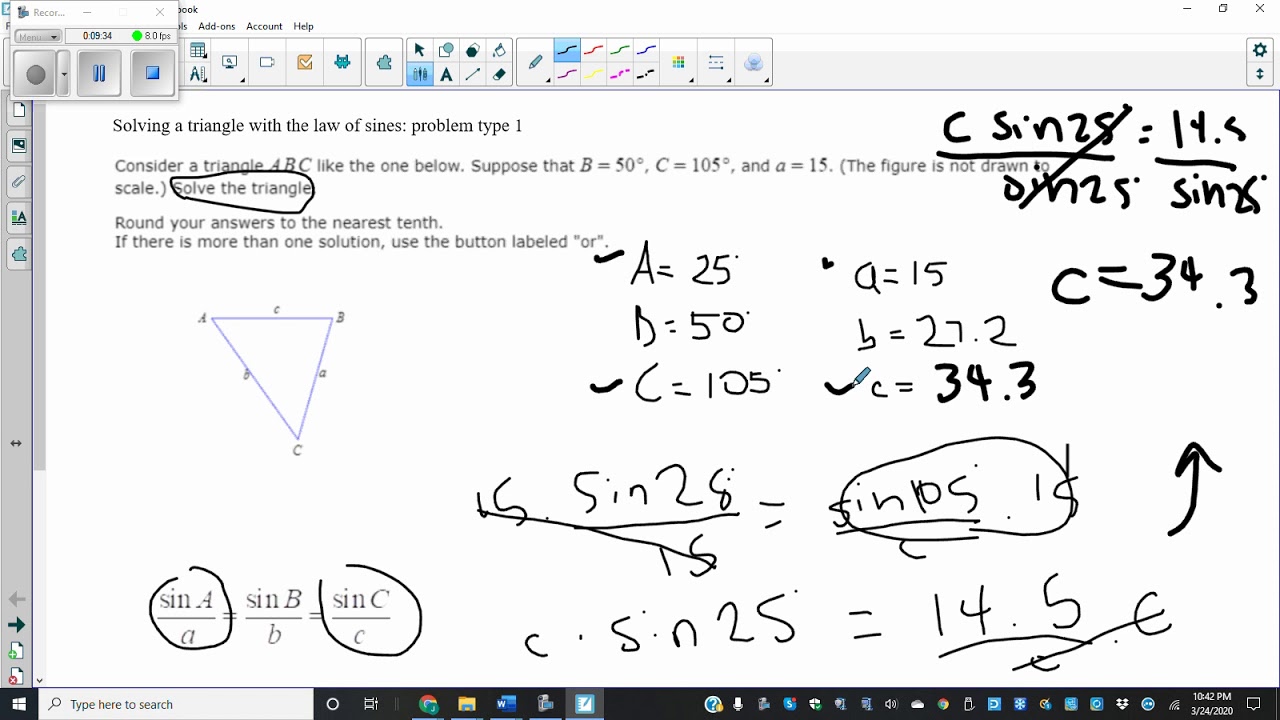 Recor...
book
Menu
0:09:34
8.0 fps
Add-ons Account Help
Solving a triangle with the law of sines: problem type 1
Consider a triangle ABC like the one below. Suppose that B = 50°, C = 105°, and a = 15. (The figure is not drawn to
scale.) Solve the triangle.
Round your answers to the nearest tenth.
If there is more than one solution, use the button labeled "or".
c sin25 = 14.5
sin25 sin25
c=34.3
A= 25°
a=15
B=50°
b=27.2
C=105°
c= 34.3
A c B
b a
C
15. sin25 = sin105 . 15
15 c
sin A = sin B = sin C
a b c
c · sin25° = 14.5 . c
c
Type here to search
10:42 PM
3/24/2020